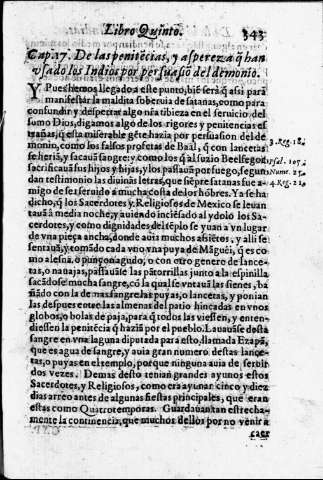 Libro Quinto. 343
Cap. 17. De las penitẽcias, y asperez a q̃ han
vsado los Indios por persuasiõ del demonio.
Y Pues hemos llegado a este punto, biẽ será q̃ assi para
manifestar la maldita soberuia de satanas, como para
confundir y despertar algo nr̃a tibieza en el seruicio del
sumo Dios, digamos algo de los rigores y penitencias es
trañas, q̃ esta miserable gẽte hazia por persuasion del de
monio, como los falsos profetas de Baàl, q̃ con lancetas
se heriã, y sacauã sangre: y como los q̃ al suzio Beelfegor
sacrificauã sus hijos y hijas, y los passauã por fuego, segun
dan testimonio las diuinas letras, que siẽpre satanas fue a-
migo de ser seruido a mucha costa de los hõbres. Ya se ha
dicho, q̃ los Sacerdotes y Religiosos de Mexico se leuan
tauã a media noche, y auiendo incẽsado al ydolo los Sa-
cerdotes, y como dignidades del tẽplo se yuan a vn lugar
de vna pieça ancha, donde auia muchos assiẽtos, y alli se
sentauã, y tomãdo cada vno vna puya de Mãguéi, q̃ es co-
mo alesna, o punçon agudo, o con otro genero de lance-
tas, o nauajas, passauãse las pãtorrillas junto a la espinilla
sacãdose mucha sangre, cõ la qual se vntauã las sienes, ba
ñãdo con la demas sangre las puyas, o lancetas, y ponian
las despues entre las almenas del patio hincadas en vnos
globos, o bolas de paja, para q̃ todos las viessen, y enten-
diessen la penitẽcia q̃ haziã por el pueblo. Lauauãse desta
sangre en vna laguna diputada para esto, llamada Ezapã,
que es agua de sangre, y auia gran numero destas lance-
tas, o puyas en el templo, porque ninguna auia de seruir
dos vezes. Demas desto tenian grandes ayunos estos
Sacerdotes, y Religiosos, como era ayunar cinco y diez
dias arreo antes de algunas fiestas principales, que eran
estas como Quatro temporas. Guardauan tan estrecha-
mente la continencia, que muchos dellos por no venir a
caer
3. Reg. 18.
Psal. 105.
Num. 25.
4. Reg. 21.